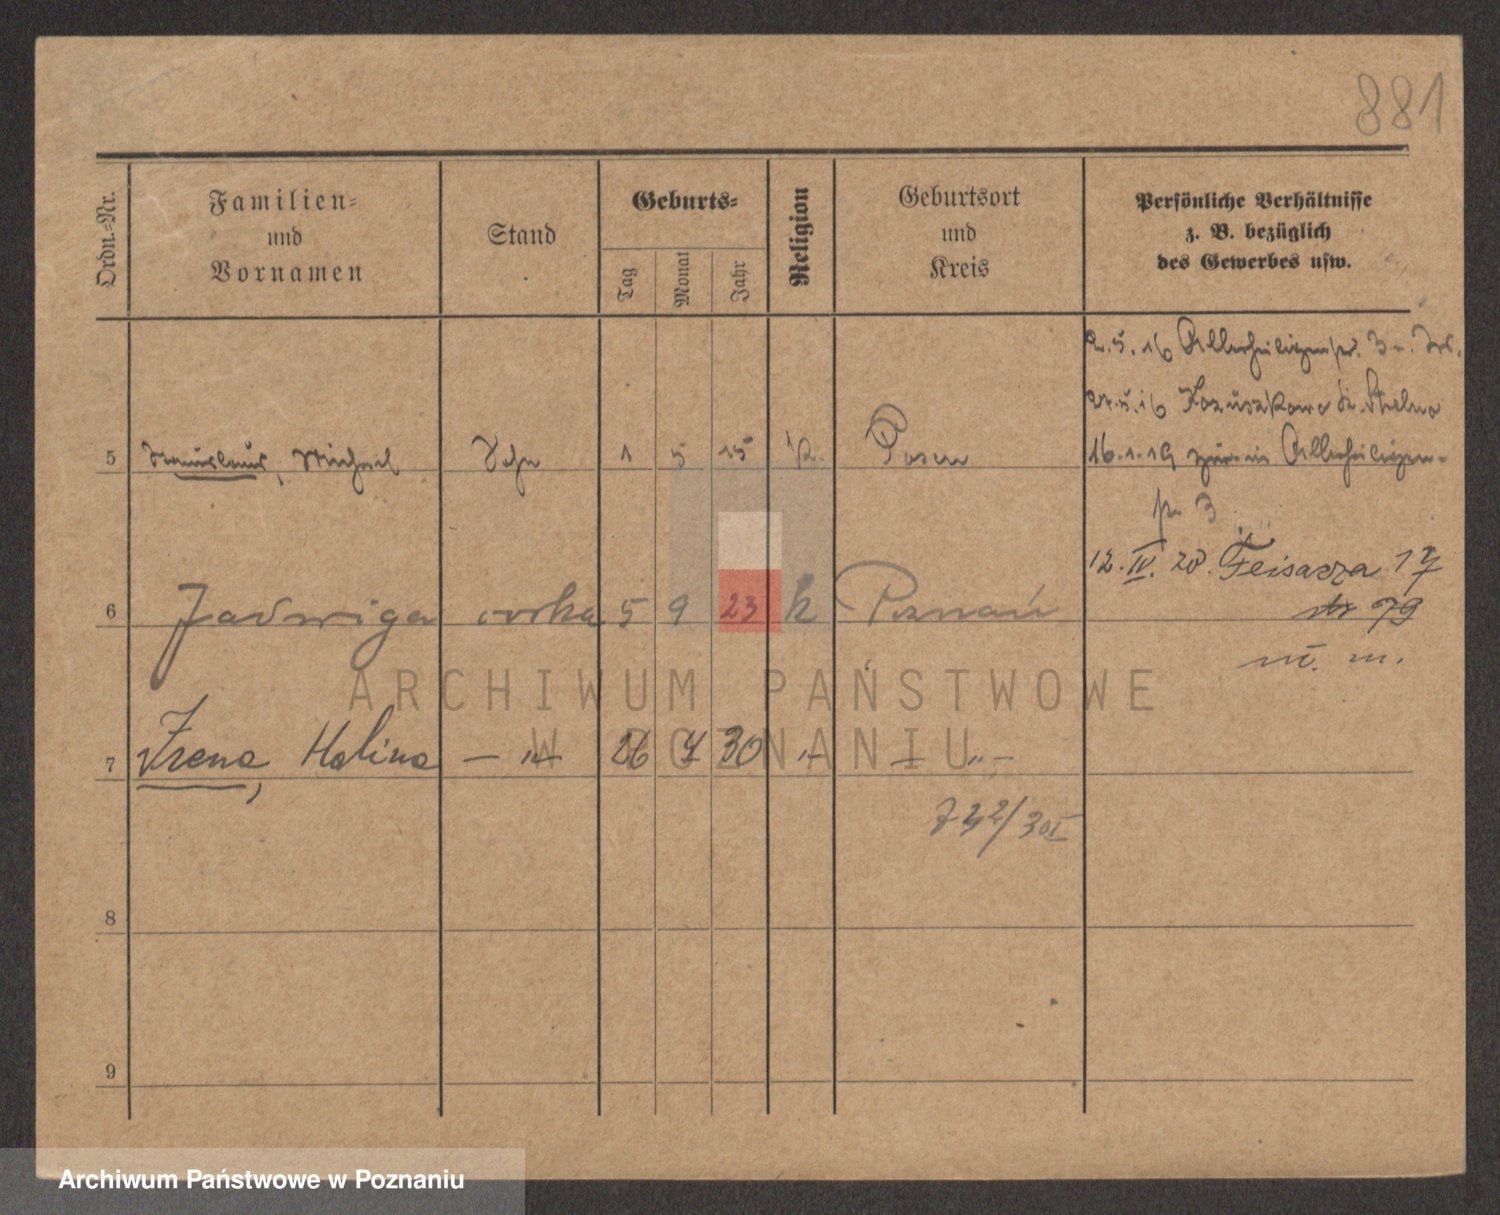 881
Ordn.=Nr.
Familien=
und
Vornamen
Stand
Geburts=
Tag
Monat
Jahr
Religion
Geburtsort
und
Kreis
Persönliche Verhältnisse
z. B. bezüglich
des Gewerbes usw.
2.5.16 Allerheiligenstr. 3
27.5.16
5 Stanislaus, Michael Sohn 1 5 15 k. Posen 16.1.19 zurück Allerheiligen-
str 3
12. IV. 20. 17
6 Jadwiga córka 5 9 23 k Poznań
79
m.
ARCHIWUM PAŃSTWOWE
W POZNANIU
7 Irena, Halina — „ — 26 7 30 „ — „ —
8
9
Archiwum Państwowe w Poznaniu